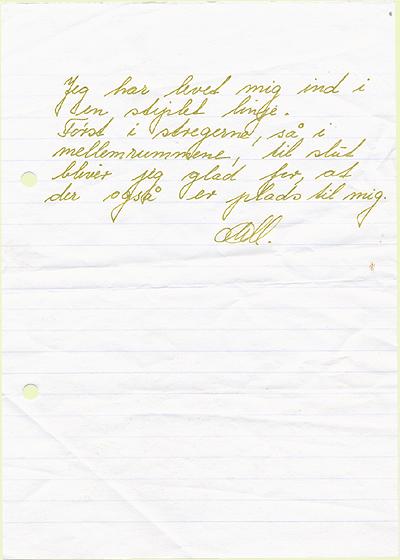 Jeg har levet mig ind i
en stiplet linje.
Først i stregerne, så i
mellemrummene, til slut
bliver jeg glad for, at
der også er plads til mig.